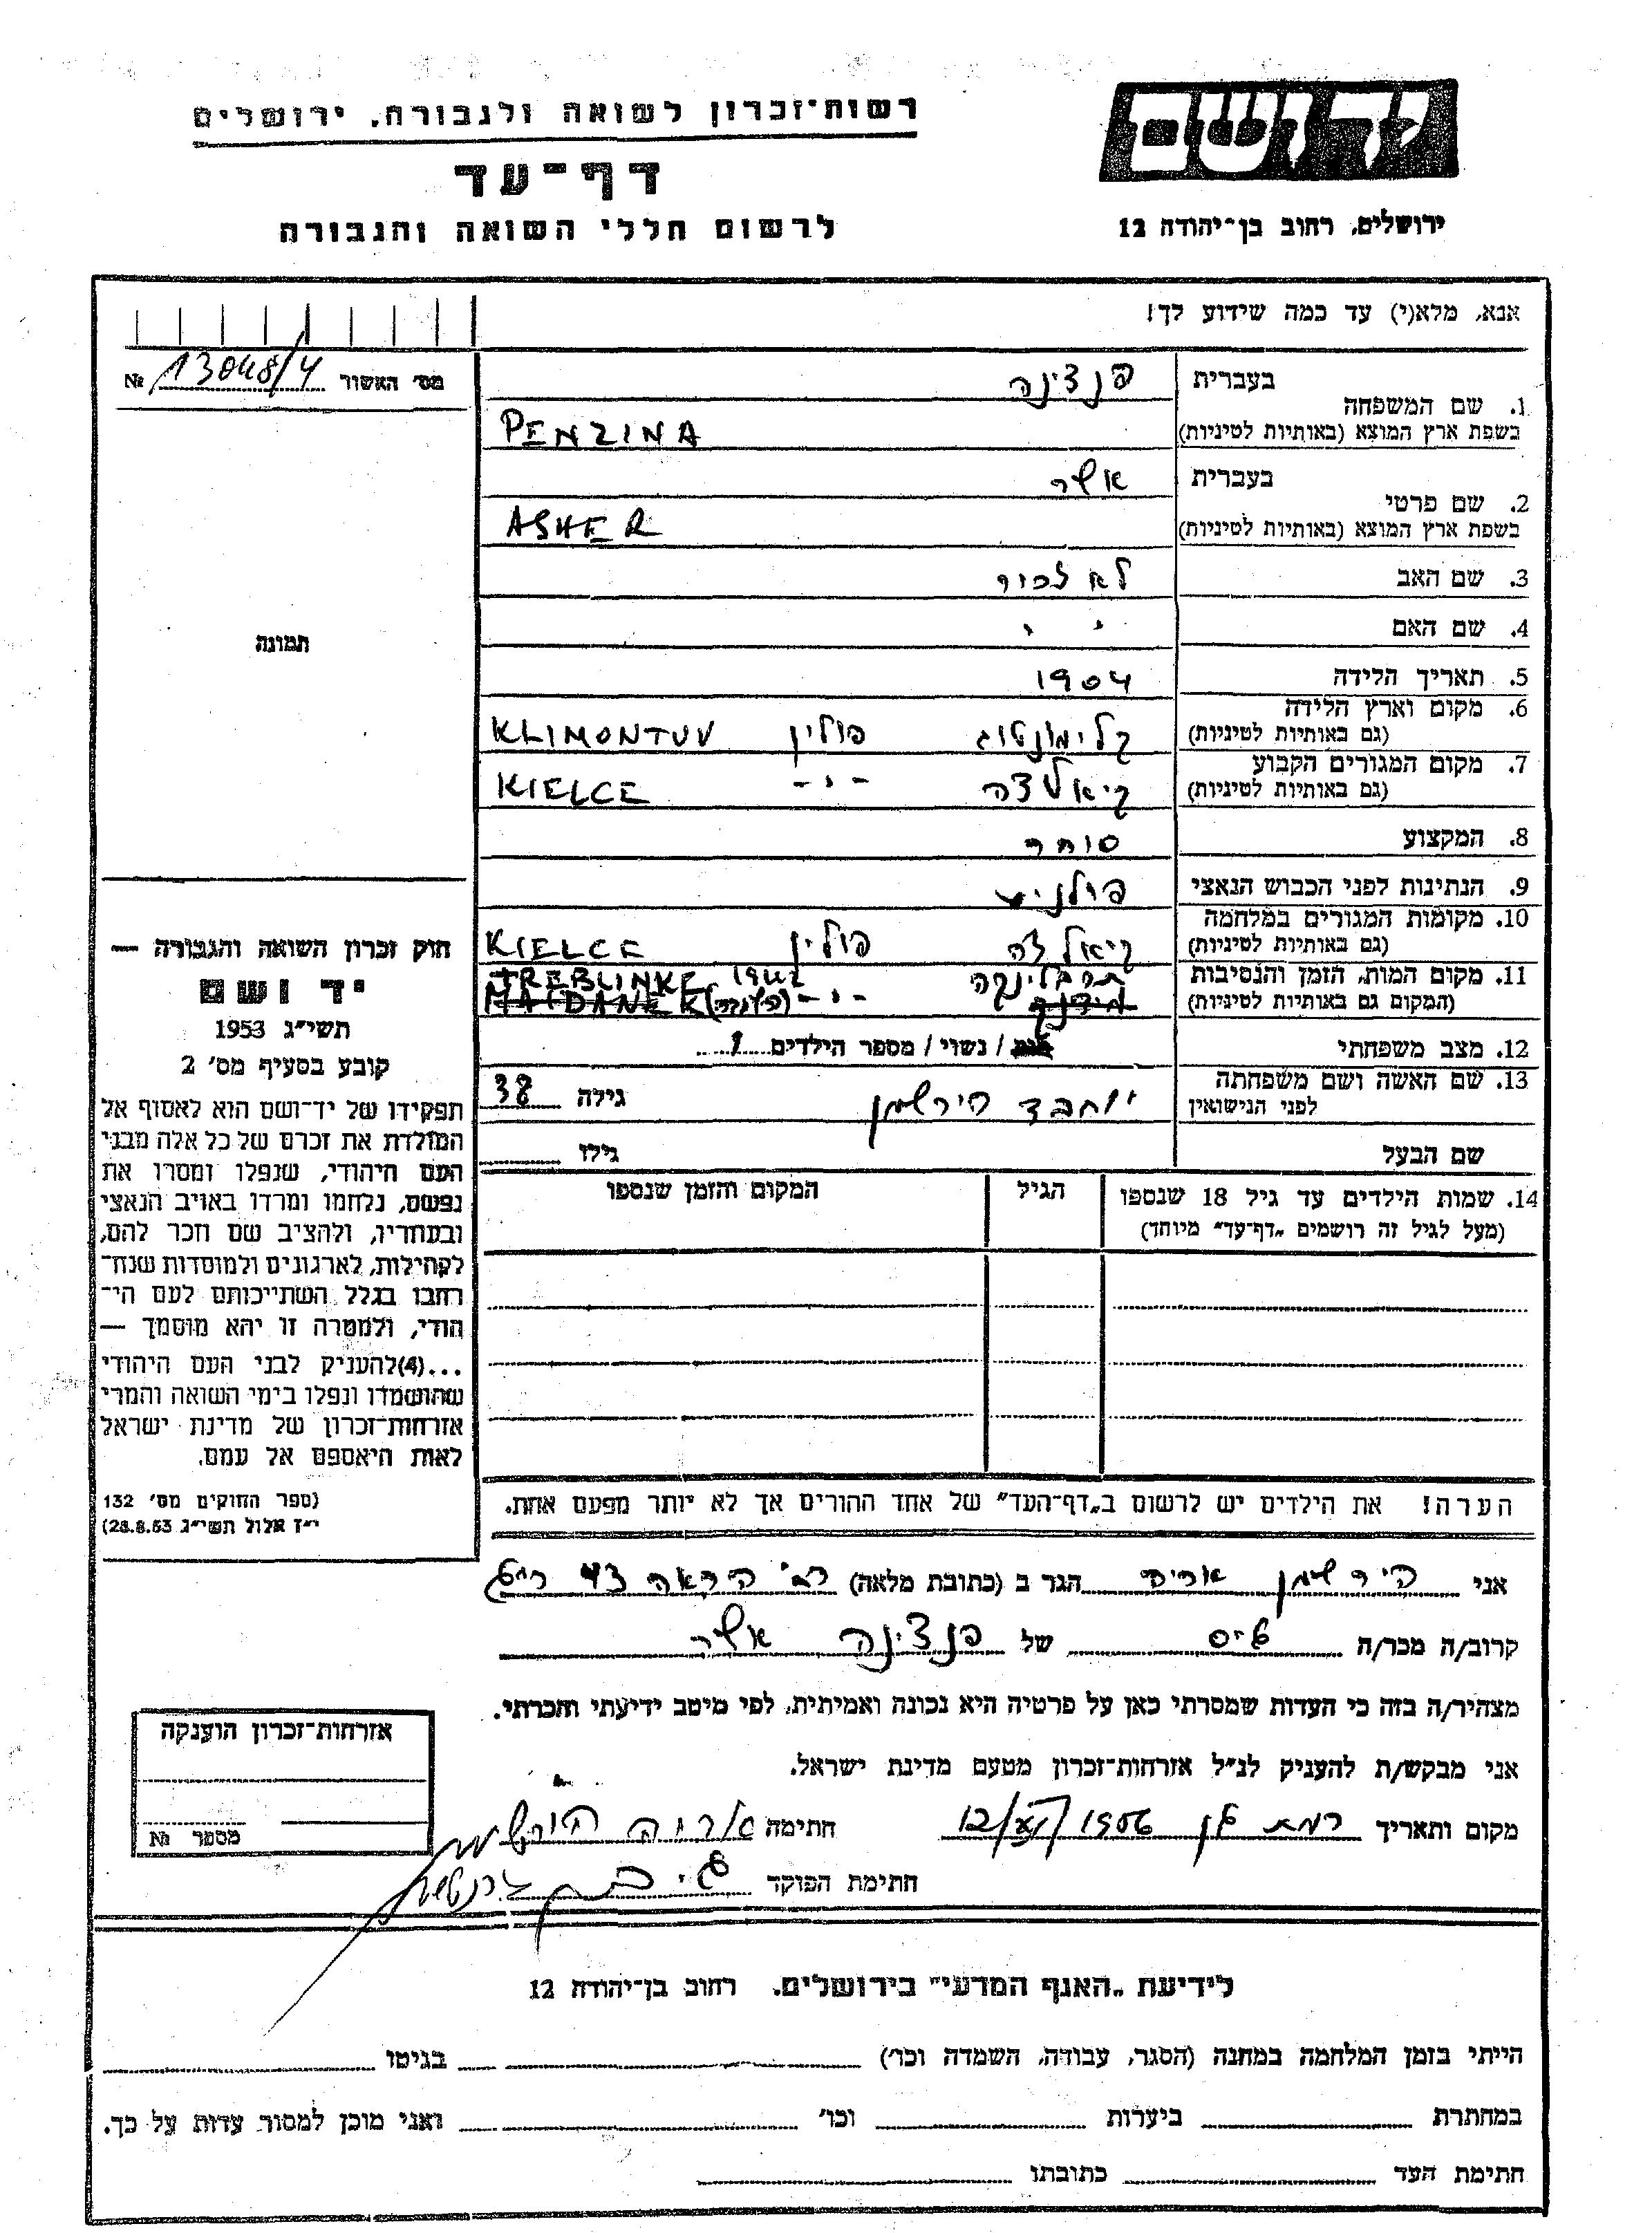 יד ושם
רשות־זכרון לשואה ולגבורה, ירושלים
דף־עד
לרשום חללי השואה והגבורה
ירושלים, רחוב בן־יהודה 12
אנא, מלא(י) עד כמה שידוע לך!
מס׳ האשור 13048/4 №
תמונה
1. שם המשפחה
בעברית פנצינה
בשפת ארץ המוצא (באותיות לטיניות) PENZINA
2. שם פרטי
בעברית אשר
בשפת ארץ המוצא (באותיות לטיניות) ASHER
3. שם האב לא זכור
4. שם האם " "
5. תאריך הלידה 1904
6. מקום וארץ הלידה
(גם באותיות לטיניות) קלימונטוב פולין KLIMONTUV
7. מקום המגורים הקבוע
(גם באותיות לטיניות) קיאלצה -״- KIELCE
8. המקצוע סוחר
9. הנתינות לפני הכבוש הנאצי פולנית
10. מקומות המגורים במלחמה
(גם באותיות לטיניות) קיאלצה פולין KIELCE
11. מקום המות, הזמן והנסיבות טרבלינקה TREBLINKE 1942
(המקום גם באותיות לטיניות) מידנק -״- MAJDANEK
12. מצב משפחתי / נשוי / מספר הילדים 1
13. שם האשה ושם משפחתה
לפני הנישואין יוכבד הירשמן גילה 38
שם הבעל גילו
14. שמות הילדים עד גיל 18 שנספו הגיל המקום והזמן שנספו
(מעל לגיל זה רושמים „דף־עד” מיוחד)
הערה! את הילדים יש לרשום ב„דף־העד” של אחד ההורים אך לא יותר מפעם אחת.
חוק זכרון השואה והגבורה —
יד ושם
תשי״ג 1953
קובע בסעיף מס׳ 2
תפקידו של יד־ושם הוא לאסוף אל
המולדת את זכרם של כל אלה מבני
העם היהודי, שנפלו ומסרו את
נפשם, נלחמו ומרדו באויב הנאצי
ובעוזריו, ולהציב שם וזכר להם,
לקהילות, לארגונים ולמוסדות שנח־
רבו בגלל השתייכותם לעם הי־
הודי, ולמטרה זו יהא מוסמך —
...(4)להעניק לבני העם היהודי
שהושמדו ונפלו בימי השואה והמרי
אזרחות־זכרון של מדינת ישראל
לאות היאספם אל עמם.
(ספר החוקים מס׳ 132
י״ז אלול תשי״ג 28.8.53)
אני הירשמן אריה הגר ב (כתובת מלאה) רח׳ הראה 43
קרוב/ה מכר/ה גיס של פנצינה אשר
מצהיר/ה בזה כי העדות שמסרתי כאן על פרטיה היא נכונה ואמיתית, לפי מיטב ידיעתי והכרתי.
אני מבקש/ת להעניק לנ״ל אזרחות־זכרון מטעם מדינת ישראל.
מקום ותאריך רמת גן 1956 חתימה אריה הירשמן
חתימת הפוקד
אזרחות־זכרון הוענקה
מספר №
לידיעת „האגף המדעי” בירושלים, רחוב בן־יהודה 12
הייתי בזמן המלחמה במחנה (הסגר, עבודה, השמדה וכו׳) בגיטו
במחתרת ביערות וכו׳ ואני מוכן למסור עדות על כך.
חתימת העד כתובתו